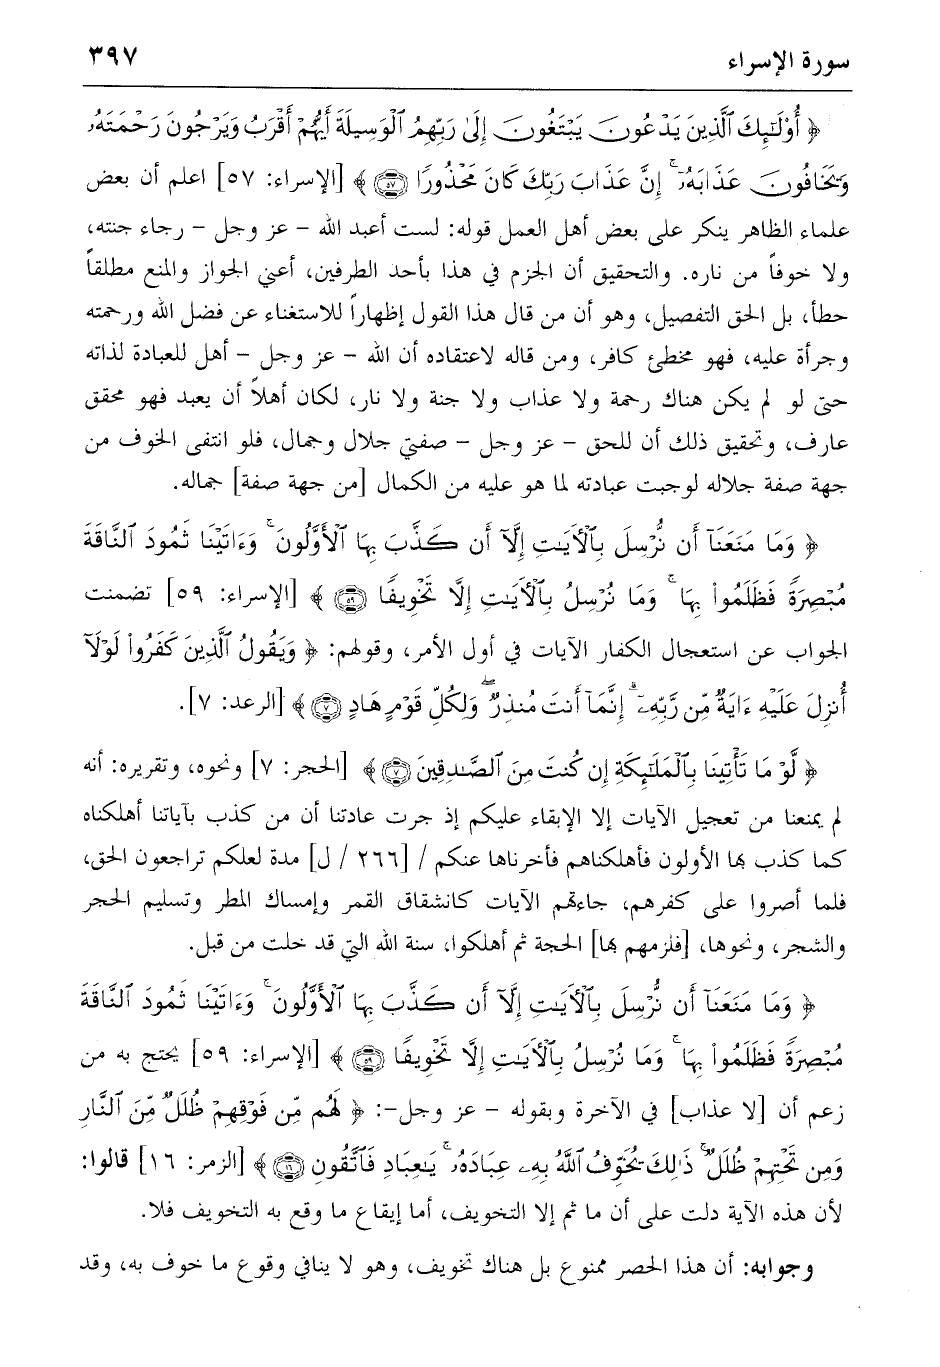 سورة الإسراء ٣٩٧
﴿ أُوْلَٰٓئِكَ ٱلَّذِينَ يَدْعُونَ يَبْتَغُونَ إِلَىٰ رَبِّهِمُ ٱلْوَسِيلَةَ أَيُّهُمْ أَقْرَبُ وَيَرْجُونَ رَحْمَتَهُۥ
وَيَخَافُونَ عَذَابَهُۥٓ ۚ إِنَّ عَذَابَ رَبِّكَ كَانَ مَحْذُورًا ﴿٥٧﴾ ﴾ [الإسراء: ٥٧] اعلم أن بعض
علماء الظاهر ينكر على بعض أهل العمل قوله: لست أعبد الله – عز وجل – رجاء جنته،
ولا خوفاً من ناره. والتحقيق أن الجزم في هذا بأحد الطرفين، أعني الجواز والمنع مطلقاً
خطأ، بل الحق التفصيل، وهو أن من قال هذا القول إظهاراً للاستغناء عن فضل الله ورحمته
وجرأة عليه، فهو مخطئ كافر، ومن قاله لاعتقاده أن الله – عز وجل – أهل للعبادة لذاته
حتى لو لم يكن هناك رحمة ولا عذاب ولا جنة ولا نار، لكان أهلاً أن يعبد فهو محقق
عارف، وتحقيق ذلك أن للحق – عز وجل – صفتي جلال وجمال، فلو انتفى الخوف من
جهة صفة جلاله لوجبت عبادته لما هو عليه من الكمال [من جهة صفة] جماله.
﴿ وَمَا مَنَعَنَآ أَن نُّرْسِلَ بِٱلْأَيَٰتِ إِلَّآ أَن كَذَّبَ بِهَا ٱلْأَوَّلُونَ ۚ وَءَاتَيْنَا ثَمُودَ ٱلنَّاقَةَ
مُبْصِرَةً فَظَلَمُوا۟ بِهَا ۚ وَمَا نُرْسِلُ بِٱلْأَيَٰتِ إِلَّا تَخْوِيفًا ﴿٥٩﴾ ﴾ [الإسراء: ٥٩] تضمنت
الجواب عن استعجال الكفار الآيات في أول الأمر، وقولهم: ﴿ وَيَقُولُ ٱلَّذِينَ كَفَرُوا۟ لَوْلَآ
أُنزِلَ عَلَيْهِ ءَايَةٌ مِّن رَّبِّهِۦٓ ۗ إِنَّمَآ أَنتَ مُنذِرٌ ۖ وَلِكُلِّ قَوْمٍ هَادٍ ﴿٧﴾ ﴾ [الرعد: ٧].
﴿ لَّوْ مَا تَأْتِينَا بِٱلْمَلَٰٓئِكَةِ إِن كُنتَ مِنَ ٱلصَّٰدِقِينَ ﴿٧﴾ ﴾ [الحجر: ٧] ونحوه، وتقريره: أنه
لم يمنعنا من تعجيل الآيات إلا الإبقاء عليكم إذ جرت عادتنا أن من كذب بآياتنا أهلكناه
كما كذب بها الأولون فأهلكناهم فأخرناها عنكم / [٢٦٦ / ل] مدة لعلكم تراجعون الحق،
فلما أصروا على كفرهم، جاءتهم الآيات كانشقاق القمر وإمساك المطر وتسليم الحجر
والشجر، ونحوها، [فلزمهم بها] الحجة ثم أهلكوا، سنة الله التي قد خلت من قبل.
﴿ وَمَا مَنَعَنَآ أَن نُّرْسِلَ بِٱلْأَيَٰتِ إِلَّآ أَن كَذَّبَ بِهَا ٱلْأَوَّلُونَ ۚ وَءَاتَيْنَا ثَمُودَ ٱلنَّاقَةَ
مُبْصِرَةً فَظَلَمُوا۟ بِهَا ۚ وَمَا نُرْسِلُ بِٱلْأَيَٰتِ إِلَّا تَخْوِيفًا ﴿٥٩﴾ ﴾ [الإسراء: ٥٩] يحتج به من
زعم أن [لا عذاب] في الآخرة وبقوله – عز وجل–: ﴿ لَهُم مِّن فَوْقِهِمْ ظُلَلٌ مِّنَ ٱلنَّارِ
وَمِن تَحْتِهِمْ ظُلَلٌ ۚ ذَٰلِكَ يُخَوِّفُ ٱللَّهُ بِهِۦ عِبَادَهُۥ ۚ يَٰعِبَادِ فَٱتَّقُونِ ﴿١٦﴾ ﴾ [الزمر: ١٦] قالوا:
لأن هذه الآية دلت على أن ما ثم إلا التخويف، أما إيقاع ما وقع به التخويف فلا.
وجوابه: أن هذا الحصر ممنوع بل هناك تخويف، وهو لا ينافي وقوع ما خوف به، وقد